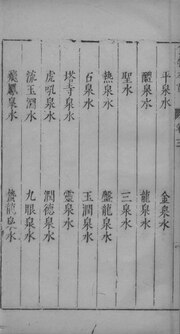 平泉水 金泉水
醴泉水 龍泉水
聖水 三泉水
熱泉水 盤龍泉水
石泉水 玉澗泉水
塔寺泉水 靈泉水
虎吼泉水 潤德泉水
流玉澗水 九眼泉水
飛鳳泉水 蟄龍泉水